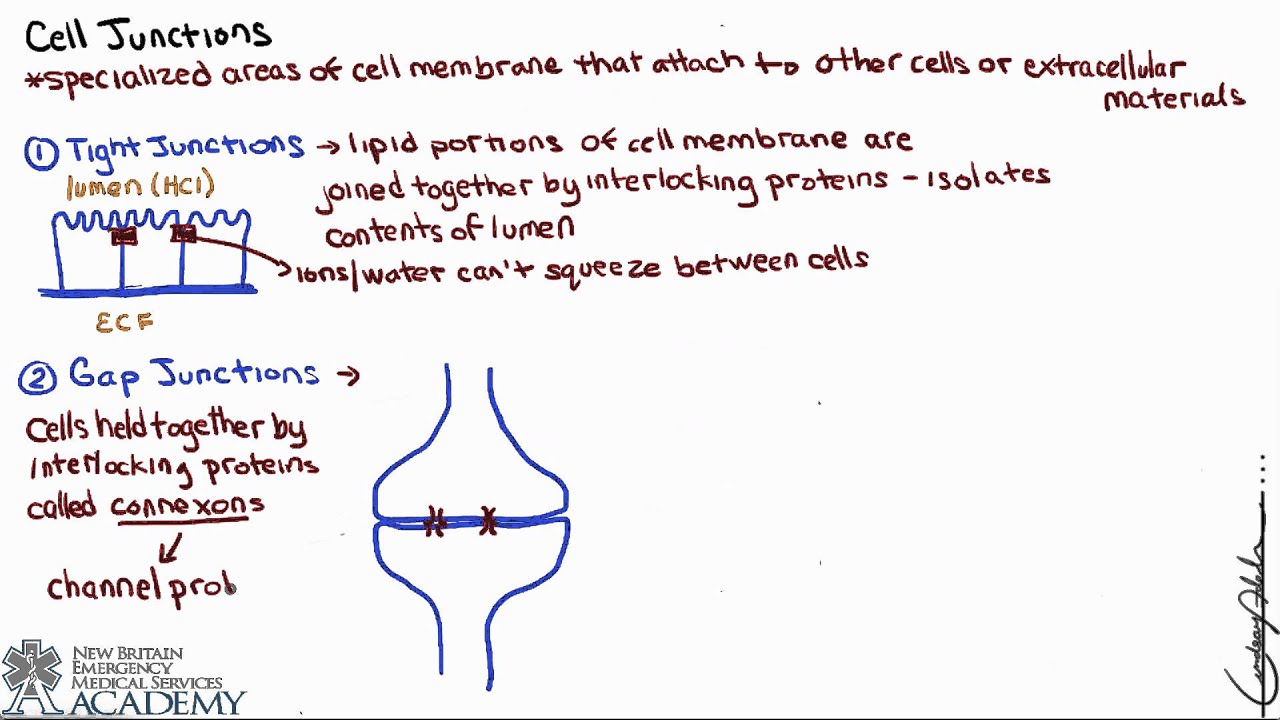 Cell Junctions
*specialized areas of cell membrane that attach to other cells or extracellular
materials
① Tight Junctions → lipid portions of cell membrane are
lumen (HCl)
joined together by interlocking proteins - isolates
contents of lumen
ions/water can't squeeze between cells
ECF
② Gap Junctions →
Cells held together by
interlocking proteins
called connexons
channel prot
NEW BRITAIN
EMERGENCY
MEDICAL SERVICES
ACADEMY